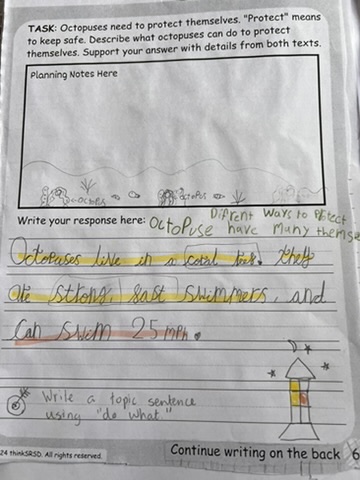 TASK: Octopuses need to protect themselves. "Protect" means
to keep safe. Describe what octopuses can do to protect
themselves. Support your answer with details from both texts.
Planning Notes Here
octopus
octopus
Write your response here: OctoPuse have many Difrent Ways to Protect themselves
Octopuses live in a coral reef. they
are strong, fast swimmers, and
can swim 25 mph.
Write a topic sentence
using "do what"
24 thinkSRSD. All rights reserved.
Continue writing on the back 6